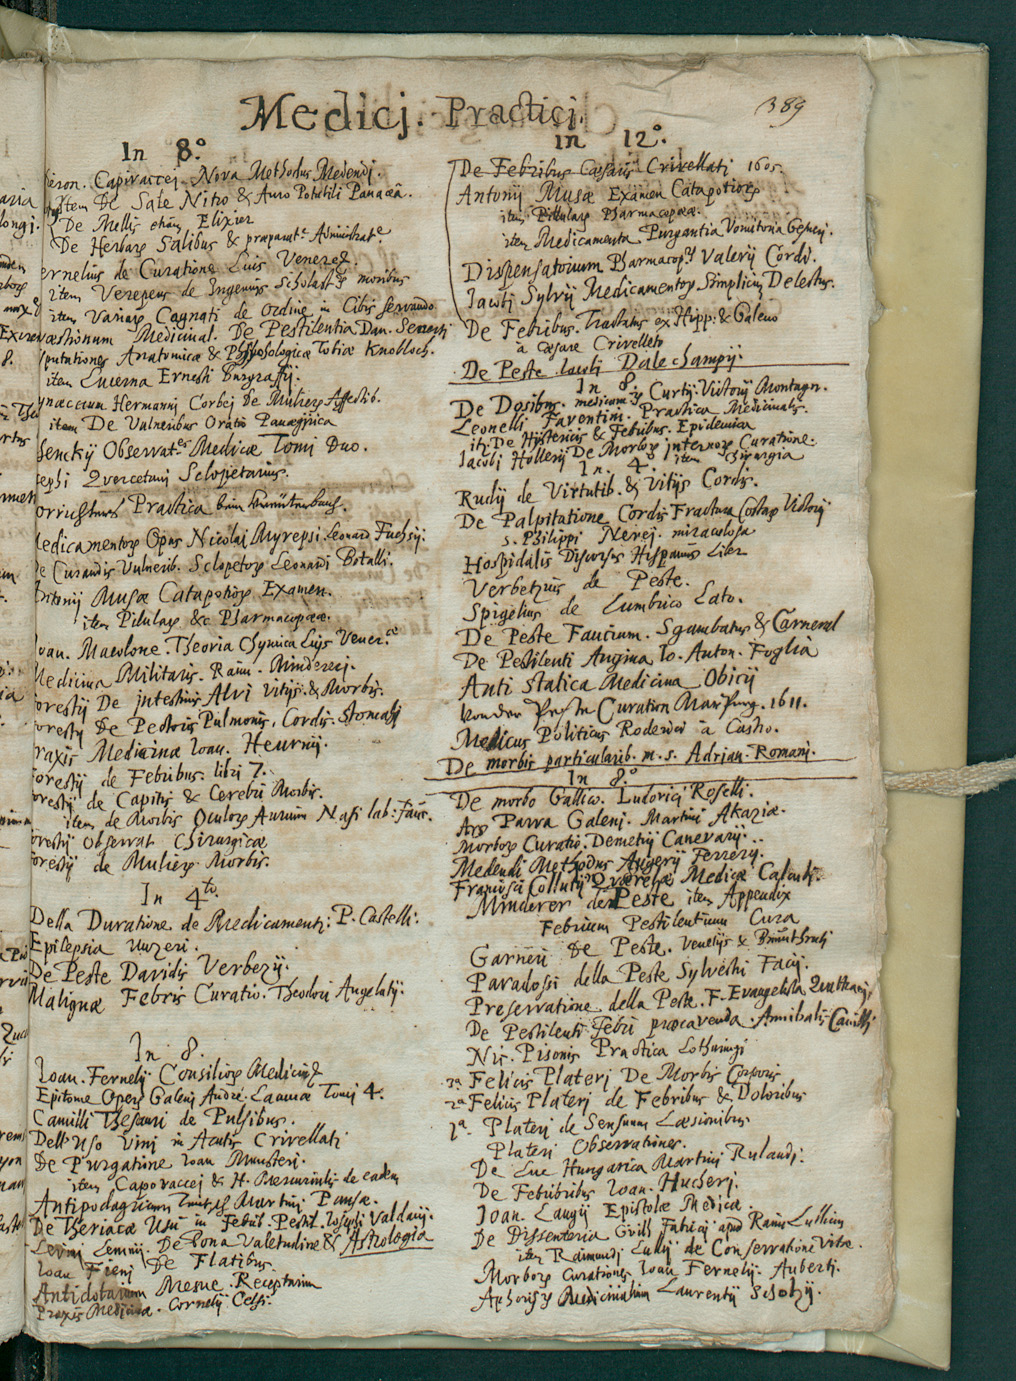 389
Medicj. Practici.
In 8.º
Hieron. Capivaccej Nova Methodus Medendj.
Item De Sale Nitro & Auro Potabili Panacæâ.
De Mellis etiam Elixier
De Herbarꝫ Salibus & præparatᵉ Administratᵉ
ernelius de Curatione Luis Venereæ.
item Verepeus de Ingenuorꝫ Scholastꝫ moribus
item Variarꝫ Cagnati de ordine in Cibis servando
Quæstionum Medicinal. De Pestilentia Dan. Sennerti
sputationes Anatomicæ & Physiologicæ Tobiæ Knobloch.
item Lucerna Ernesti Burgraffij.
ynæcium Hermanni Corbej De Mulierꝫ Affectib.
item De Vulneribus Oratio Panægirica
Senckij Observatᵉˢ Medicæ Tomi Duo.
sephi Quercetani Sclopetarius.
Practica
Medicamentorꝫ Opus Nicolai Myrepsi Leonard Fuchsij.
De Curandis Vulnerib. Sclopetorꝫ Leonardi Botalli.
Antonij Musæ Catapotiorꝫ Examen.
item Pilularꝫ &c Pharmacopææ.
Joan. Macolone. Theoria Chymica Luis Venerᵉᵃ
Medicina Militaris. Raim. Mindererj.
Forestij De intestinis Alvi vitijs. & Morbis.
Foresty De Pectoris Pulmonis, Cordis. Stomachj
Praxis Medicinæ Ioan. Heurnij.
Forestij de Febribus. libri 7.
Forestij de Capitis & Cerebri Morbis.
item de Morbis Oculorꝫ Aurium Nasi lab: fauc.
Forestij Observat Chirurgicæ
Forestij de Mulierꝫ Morbis.
In 4ᵗᵒ
Della Duratione de Medicamenti: P. Castelli:
Epilepsia Unzeri.
De Peste Davidis Verbezij.
Malignæ Febris Curatio. Theodori Angelutij.
In 8.
Ioan. Fernelij Consiliorꝫ Medicinæ
Epitome Operꝫ Galenj Andr. Lacunæ Tomj 4.
Camilli Thesauri de Pulsibus.
Dell'uso Vini in Acutis Crivellati
De Purgatione Ioan Munsteri.
item Capovaccej & H. Mercurialis de eadem
Antipodagricum Martinj Pansæ.
De Theriacæ Usu in Febrib. Pestil. Iosephi Valdanij.
Levinj Lemnij. De Bona Valetudine & Astrologia
Ioan Fienj De Flatibus.
Antidotarium Mesue. Receptarium
Praxis Medicina. Cornelij Celsi.
in 12.º
De Febribus Cæsaris Crivellati 1605.
Antonij Musæ Examen Catapotiorꝫ
item Pilularꝫ Pharmacopææ.
item Medicamenta Purgantia Vomitoria Gesnerj.
Dispensatorium Pharmacopꝫ Valerij Cordi.
Iacobi Sylvij Medicamentorꝫ Simplicium Delectus.
De Febribus. Tractatus ex Hipp. & Galeno
a Cæsare Crivellato
De Peste Iacobi Dalechampij:
In 8.
De Dosibus. medicamꝫ Curtij. Victorij Montagn.
Leonelli Faventini. Practica Medicinalis.
it: De Hystericis & Febribus. Epidemica
Iacobi Hollerij De Morborꝫ internorꝫ Curatione.
item Chirurgia
In 4.
Rudij de Virtutib. & Vitijs Cordis.
De Palpitatione Cordis Fractura Costarꝫ Victorij
S. Philippi Nerej. miraculosa
Hospidalis Discorsus Hispanus Liber
Verbetzius de Peste.
Spigelius de Lumbrico Lato.
De Peste Faucium. Sgambatus & Carnevel
De Pestilenti Angina Io. Anton. Foglia
Anti Statica Medicina Obicij
Von der Pest Curation Marpurg. 1611.
Medicus Politicus Roderici à Castro.
De morbis particularib. m. s. Adrian. Romani.
In 8.º
De morbo Gallico. Ludovici Roselli.
Ars Parva Galenj. Martini Akaziæ.
Morborꝫ Curatio. Demetrij Canevarij..
Medendi Methodus Augerij Ferrerij.
Francisci Collutij Quærelæ Medicæ Calculj.
Minderer der Peste item Appendix
Febrium Pestilentium Cura
Garneri De Peste. Venetijs &
Paradossi della Peste Sylvestri Facij.
Preservatione della Peste. F. Evangelista Quattramj,
De Pestilenti Febri præcavenda. Annibalis Camilli
Nic. Pisonis Practica Lotharingi
3ª. Felicis Platerj De Morbis Corporis
2ª Felicis Platerj de Febribus & Doloribus
1ª. Platerj de Sensuum Læsionibus
Plateri Observationes.
De Lue Hungarica Martini Rulandj:
De Febribribus Ioan. Hucherj.
Ioan. Langij Epistolæ Medica.
De Dissenteria Guilh Fabricij apud Raim Lullium
item Raimundi Lullij de Conservatione Vitæ.
Morborꝫ Curationes Ioan Fernelij. Auberti.
Aphorisꝫ Medicinalium Laurentij Scholzij.